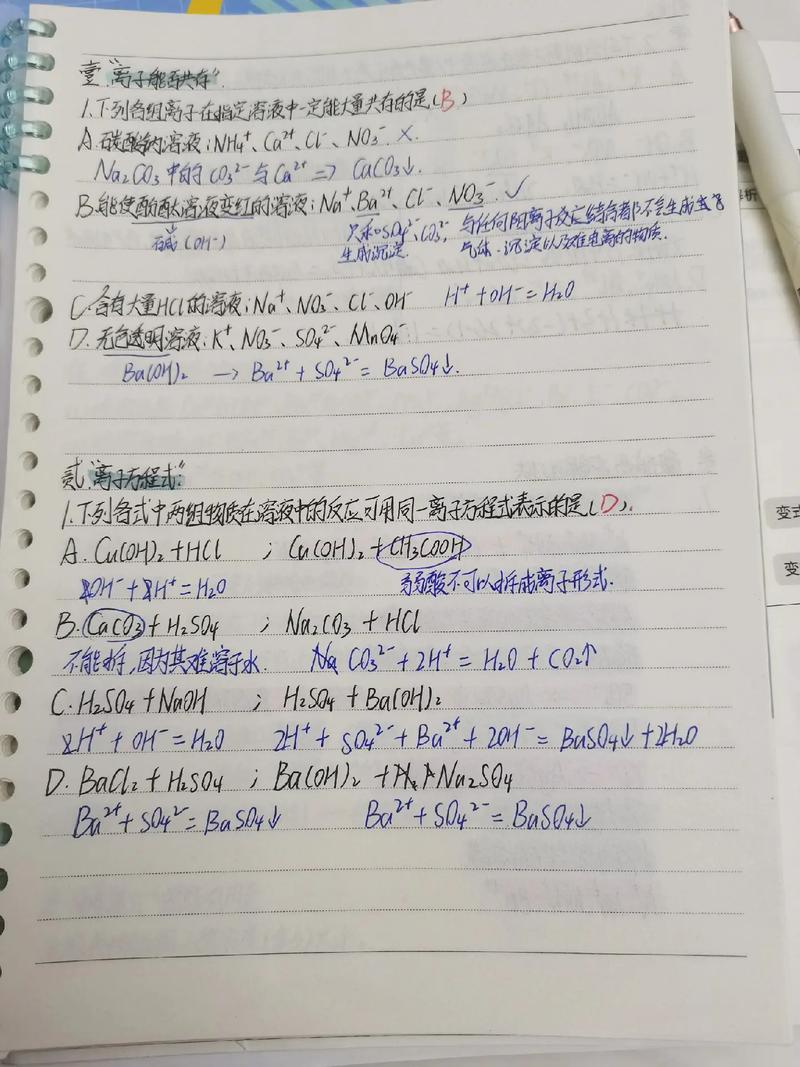 壹.“离子能否共存”.
1.下列各组离子在指定溶液中一定能大量共存的是(B)
A.碳酸钠溶液:NH₄⁺、Ca²⁺、Cl⁻、NO₃⁻ ×.
Na₂CO₃中的CO₃²⁻与Ca²⁺ => CaCO₃↓.
B.能使酚酞溶液变红的溶液:Na⁺、Ba²⁺、Cl⁻、NO₃⁻. ✓
碱(OH⁻) 只和SO₄²⁻、CO₃²⁻ 与任何阳离子反应结合都不会生成
生成沉淀. 气体、沉淀以及难电离的物质.
C.含有大量HCl的溶液:Na⁺、NO₃⁻、Cl⁻、OH⁻ H⁺+OH⁻=H₂O
D.无色透明溶液:K⁺、NO₃⁻、SO₄²⁻、MnO₄⁻.
Ba(OH)₂ → Ba²⁺+SO₄²⁻=BaSO₄↓.
贰.“离子方程式”
1.下列各式中两组物质在溶液中的反应可用同一离子方程式表示的是(D).
A.Cu(OH)₂+HCl ; Cu(OH)₂+CH₃COOH
OH⁻+H⁺=H₂O 弱酸不可以拆成离子形式.
B.CaCO₃+H₂SO₄ ; Na₂CO₃+HCl
不能拆,因为其难溶于水. CO₃²⁻+2H⁺=H₂O+CO₂↑
C.H₂SO₄+NaOH ; H₂SO₄+Ba(OH)₂
H⁺+OH⁻=H₂O 2H⁺+SO₄²⁻+Ba²⁺+2OH⁻=BaSO₄↓+2H₂O
D.BaCl₂+H₂SO₄ ; Ba(OH)₂+Na₂SO₄
Ba²⁺+SO₄²⁻=BaSO₄↓ Ba²⁺+SO₄²⁻=BaSO₄↓
解析
变式
变